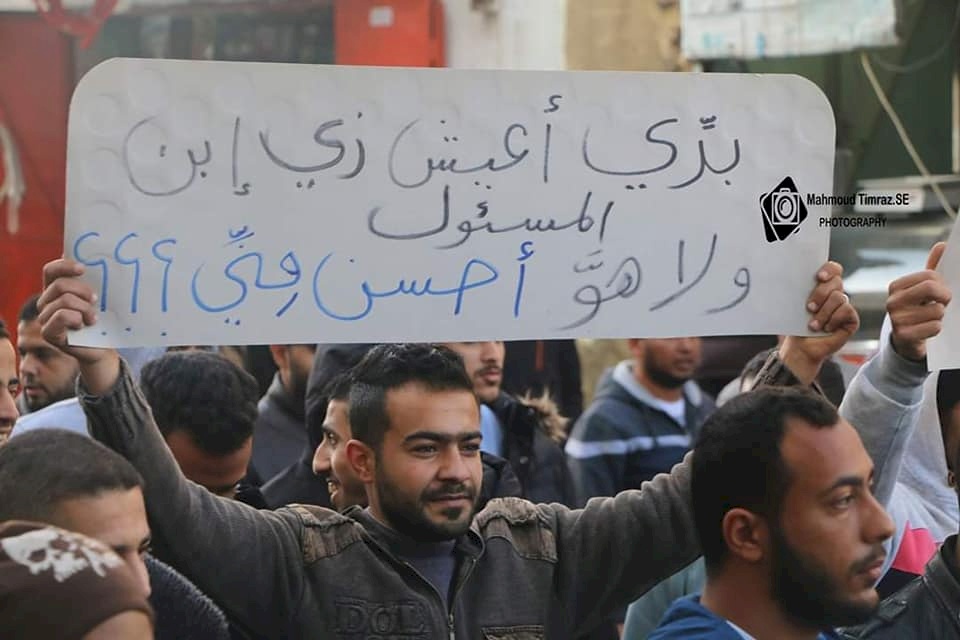 بدِّي أعيش زي إبن
المسئول
ولا هوَّ أحسن مِنِّي؟؟؟
Mahmoud Timraz.SE
PHOTOGRAPHY
DOL